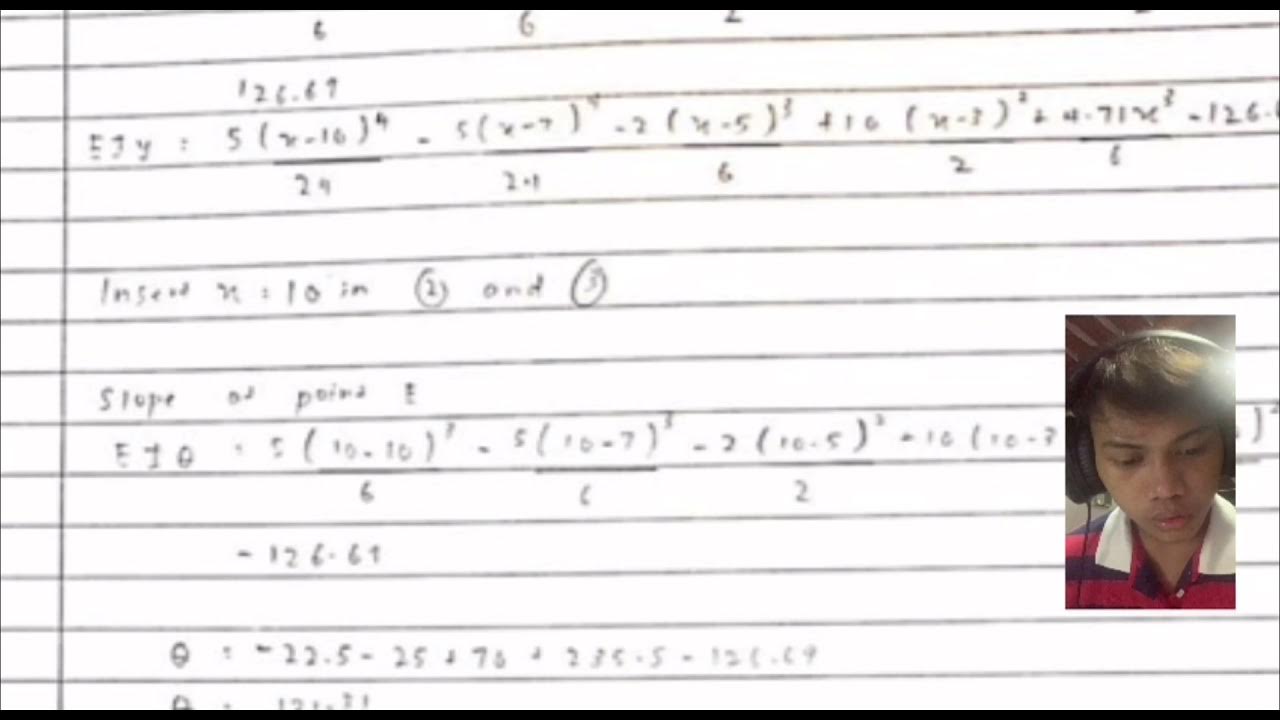 6 6 2
126.69
EIy = 5(x-10)⁴/24 - 5(x-7)⁴/24 - 2(x-5)³/6 + 10(x-3)²/2 + 4.71x³/6 - 126.
Insert x = 10 in ② and ③
Slope at point E
EIθ = 5(10-10)³/6 - 5(10-7)³/6 - 2(10-5)²/2 + 10(10-3
- 126.69
θ = -22.5 - 25 + 70 + 235.5 - 126.69